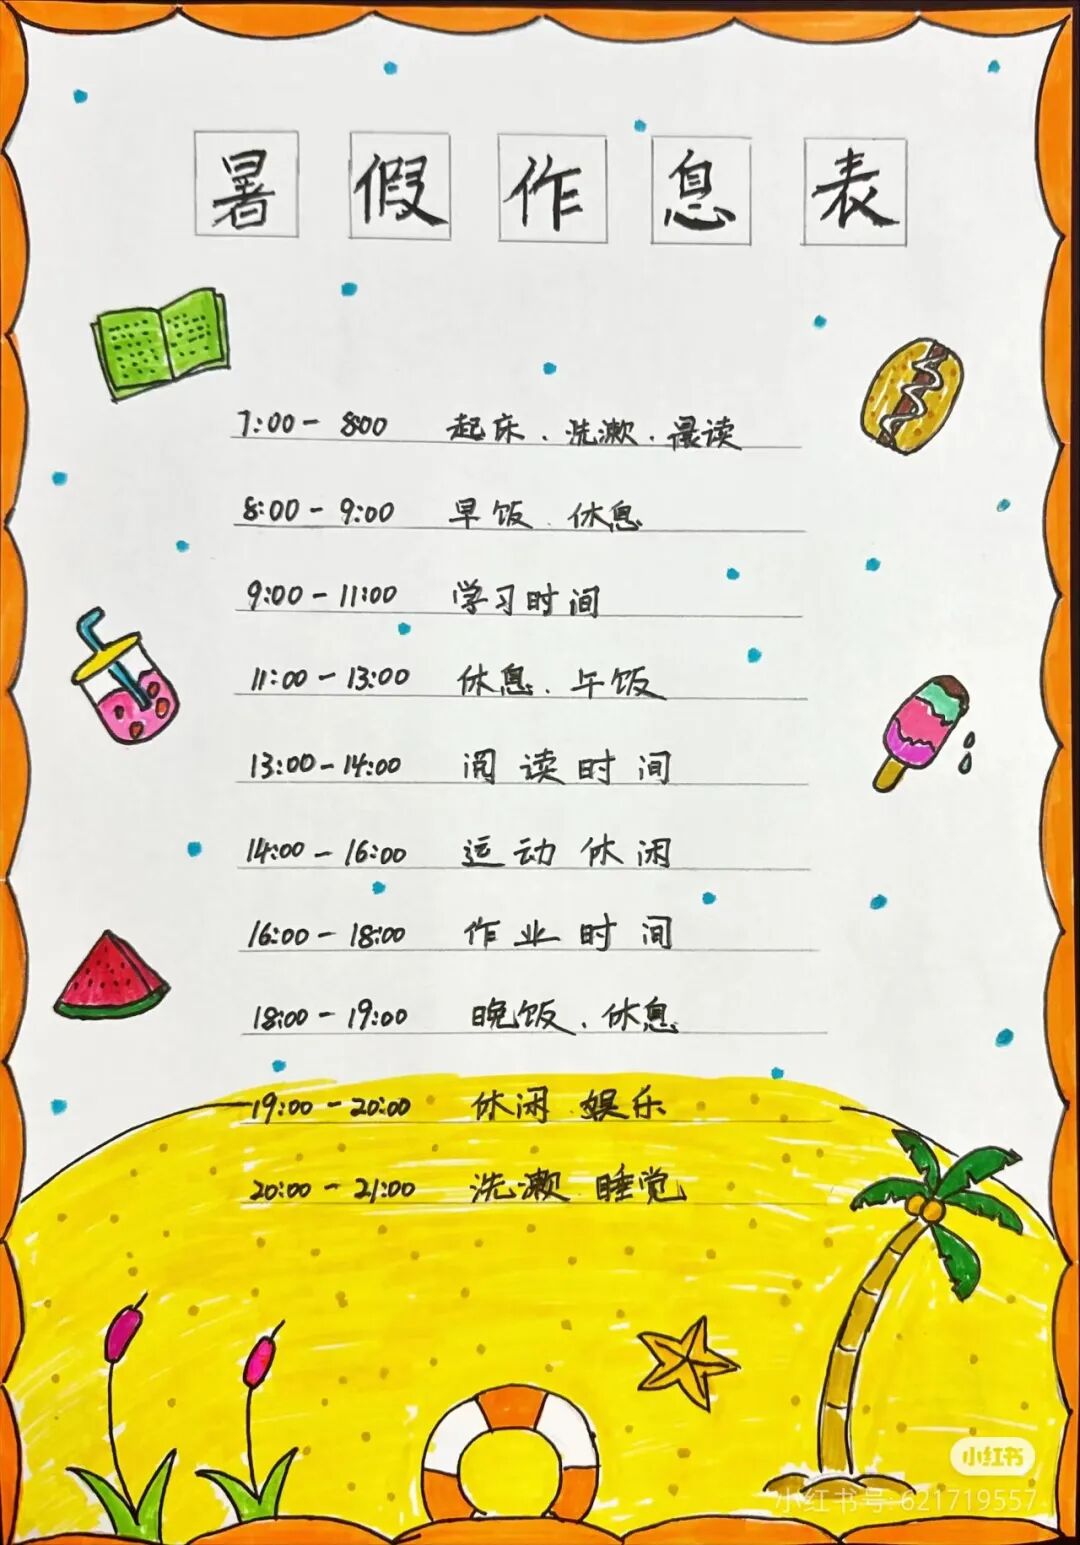 暑假作息表
7:00－8:00 起床、洗漱、晨读
8:00－9:00 早饭、休息
9:00－11:00 学习时间
11:00－13:00 休息、午饭
13:00－14:00 阅读时间
14:00－16:00 运动休闲
16:00－18:00 作业时间
18:00－19:00 晚饭、休息
19:00－20:00 休闲 娱乐
20:00－21:00 洗漱 睡觉
小红书
小红书号: 621719557